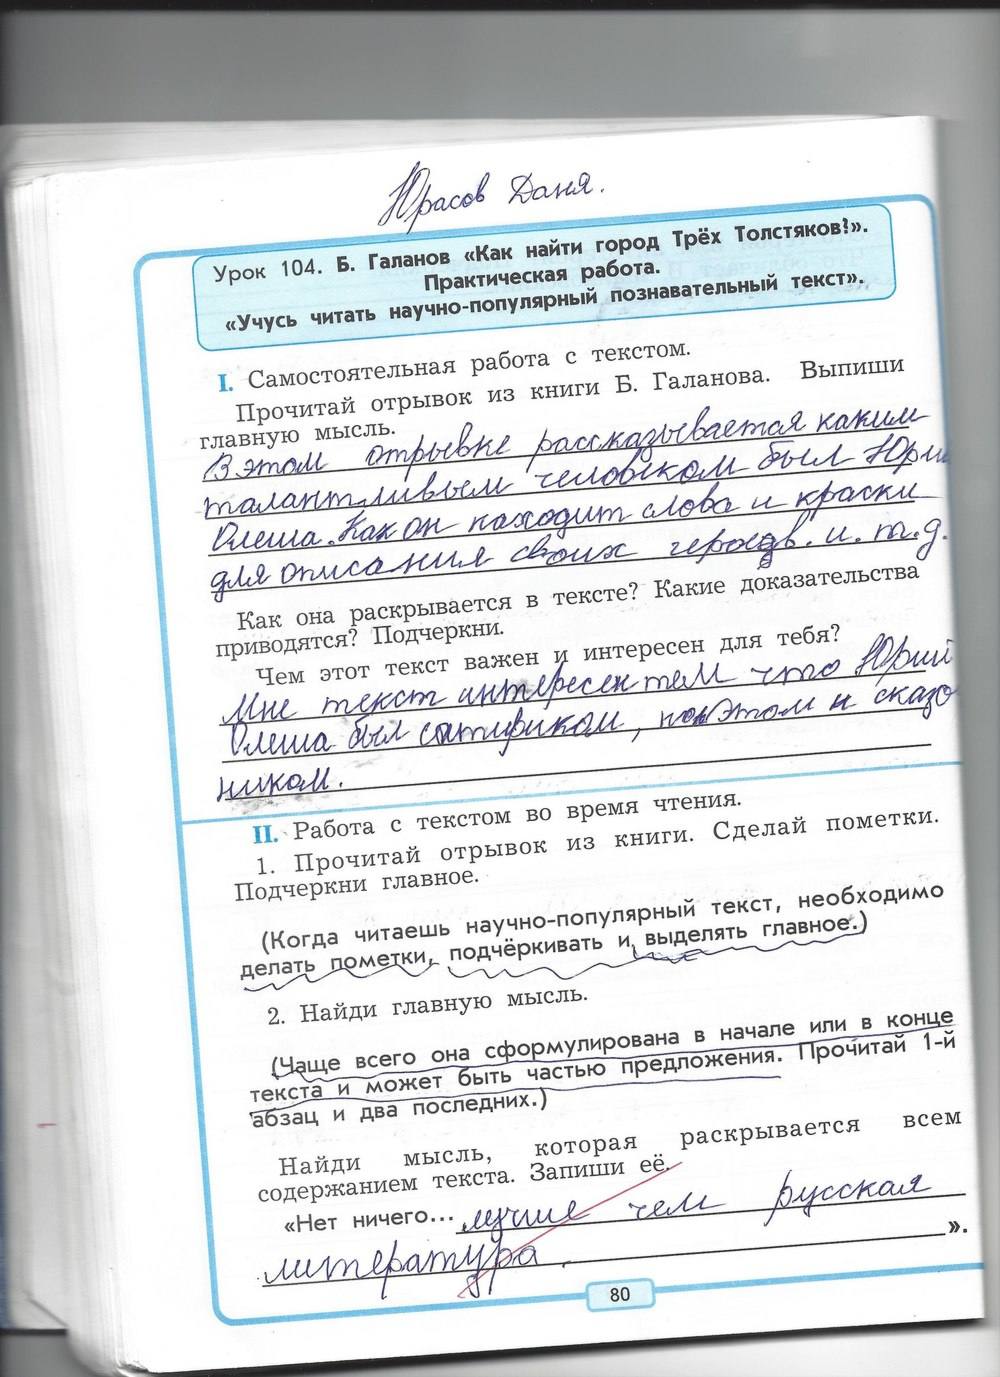 Юрасов Даня.
Урок 104. Б. Галанов «Как найти город Трёх Толстяков?».
Практическая работа.
«Учусь читать научно-популярный познавательный текст».
I. Самостоятельная работа с текстом.
Прочитай отрывок из книги Б. Галанова. Выпиши
главную мысль.
В этом отрывке рассказывается каким
талантливым человеком был Юрий
Олеша. Как он находит слова и краски
для описания своих героев. и. т. д.
Как она раскрывается в тексте? Какие доказательства
приводятся? Подчеркни.
Чем этот текст важен и интересен для тебя?
Мне текст интересен тем что Юрий
Олеша был сатириком, поэтом и сказо
ником.
II. Работа с текстом во время чтения.
1. Прочитай отрывок из книги. Сделай пометки.
Подчеркни главное.
(Когда читаешь научно-популярный текст, необходимо
делать пометки, подчёркивать и выделять главное.)
2. Найди главную мысль.
(Чаще всего она сформулирована в начале или в конце
текста и может быть частью предложения. Прочитай 1-й
абзац и два последних.)
Найди мысль, которая раскрывается всем
содержанием текста. Запиши её.
«Нет ничего... лучше чем русская
литература ».
80